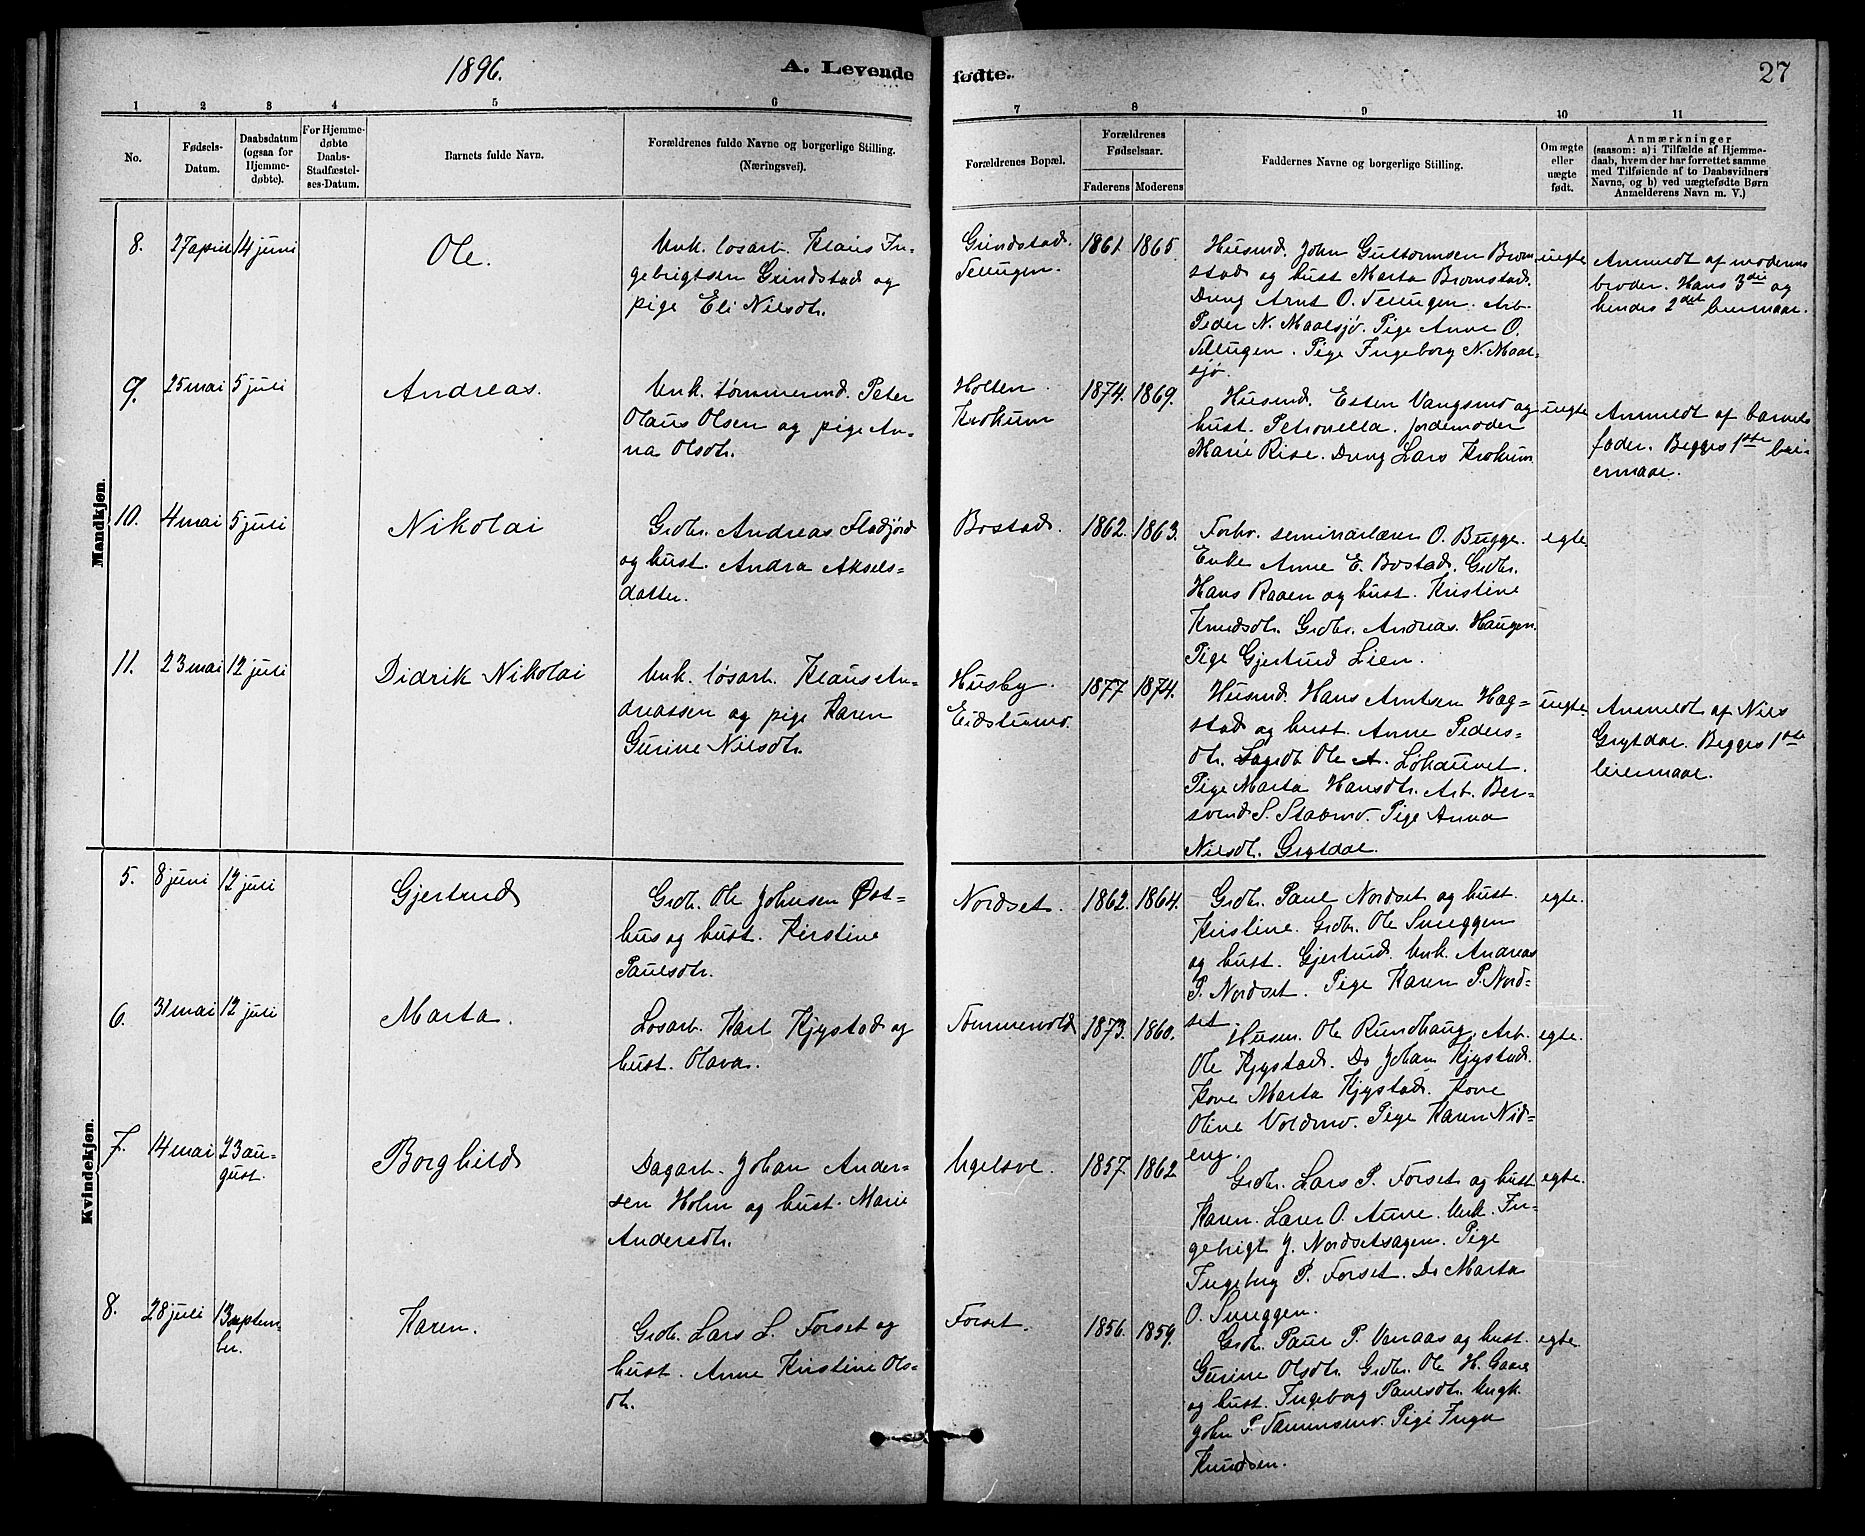 1896.
A. Levende
fødte.
27
1
2
3
4
5
6
7
8
9
10
11
No.
Fødsels-
Datum.
Daabsdatum
(ogsaa for
Hjemme-
døbte).
For Hjemme-
døbte
Daabs-
Stadfæstel-
ses-Datum.
Barnets fulde Navn.
Forældrenes fulde Navne og borgerlige Stilling.
(Næringsvei).
Forældrenes Bopæl.
Forældrenes
Fødselsaar.
Faderens
Moderens
Faddernes Navne og borgerlige Stilling.
Om ægte
eller
uægte
født.
Anmærkninger
(saasom: a) i Tilfælde af Hjemme-
daab, hvem der har forrettet samme
med Tilføiende af to Daabsvidners
Navne, og b) ved uægtefødte Børn
Anmelderens Navn m. V.)
Mandkjøn.
8.
27 april
14 juni
Ole.
Unk. løsarb. Klaus In-
gebrigtsen Grindstad og
pige Eli Nilsdtr.
Grindstad.
1861.
1865.
Husmd. John Guttormsen Brom-
stad og hust Marta Bromstad.
Dreng Arnt O. Arb.
Peder N. Maalsjø. Pige Anne O.
Pige Ingeborg N. Maal-
sjø.
uegte
Anmeldt af moderens
broder. Hans 3die og
hendes 2det leiermaal.
9.
25 mai
5 juli
Andreas.
Unk. tømmermd. Peter
Olaus Olsen og pige An-
na Olsdtr.
Holten
Krokum
1874.
1869.
Husmd. Esten Vangsmo og
hust. Petronella. Jordemoder
Marie Rise. Dreng Lars Krokum
uegte
Anmeldt af barnets
fader. Begges 1ste lei-
ermaal.
10.
4 mai
5 juli
Nikolai
Grdbr. Andreas Fladjord
og hust. Andra Aksels-
datter.
Bostad.
1862.
1863.
Forhv. seminarlærer O. Bugge.
Enke Anne E. Bostad. Grdbr.
Hans Raaen og hust. Kristine
Knudsdtr. Grdbr. Andreas Haugen.
Pige Gjertrud Lien.
egte.
11.
23 mai
12 juli
Didrik Nikolai
Unk. løsarb. Klaus An-
dreassen og pige Karen
Gurine Nilsdtr.
Husby.
Eidstumo.
1877
1874.
Husmd. Hans Arntsen Hag-
stad og hust. Anne Peders-
dtr. Ole A. Løhauvet.
Pige Marta Hansdtr. Arb. Ber-
svend S. Stabmo. Pige Anna
Nilsdtr. Grytdal.
uegte.
Anmeldt af Nils
Grytdal. Begges 1ste
leiermaal.
Kvindekjøn.
5.
8 juni
12 juli
Gjertrud
Grdbr. Ole Johnsen Øst-
hus og hust. Kirstine
Paulsdtr.
Nordset.
1862.
1864.
Grdbr. Paul Nordset og hust.
Kirstine. Grdbr. Ole Sneggen
og hust. Gjertrud. Unk. Andreas
P. Nordset. Pige Karen P. Nord-
set.
egte.
6.
31 mai
12 juli
Marta.
Løsarb. Karl Kjystad og
hust. Olava.
Tømmervold
1873.
1860.
Husm. Ole Rundhaug. Arb.
Ole Kjystad. Do Johan Kjystad.
Kone Marta Kjystad. Kone
Oline Voldmo. Pige Karen Nid-
eng.
egte.
7.
14 mai
23 au-
gust.
Borghild
Dagarb. Johan Ander-
sen Holm og hust. Marie
Andersdtr.
Ugelsve.
1857.
1862
Grdbr. Lars P. Forset og hust
Karen. Lærer O. Aune. Unk. In-
gebrigt J. Nordsetsagen. Pige
Ingeborg P. Forset. Do Marta
O. Sneggen.
egte.
8.
28 juli
13 septem-
ber.
Karen.
Grdbr. Lars L. Forset og
hust. Anne Kristine Ols-
dtr.
Forset.
1856.
1859.
Grdbr. Paul P. Vanaas og hust.
Gurine Olsdtr. Grdbr. Ole H. Gaare
og hust. Ingeborg Paulsdtr. Ungk.
John P. Pige Inga
Knudsen.
egte.